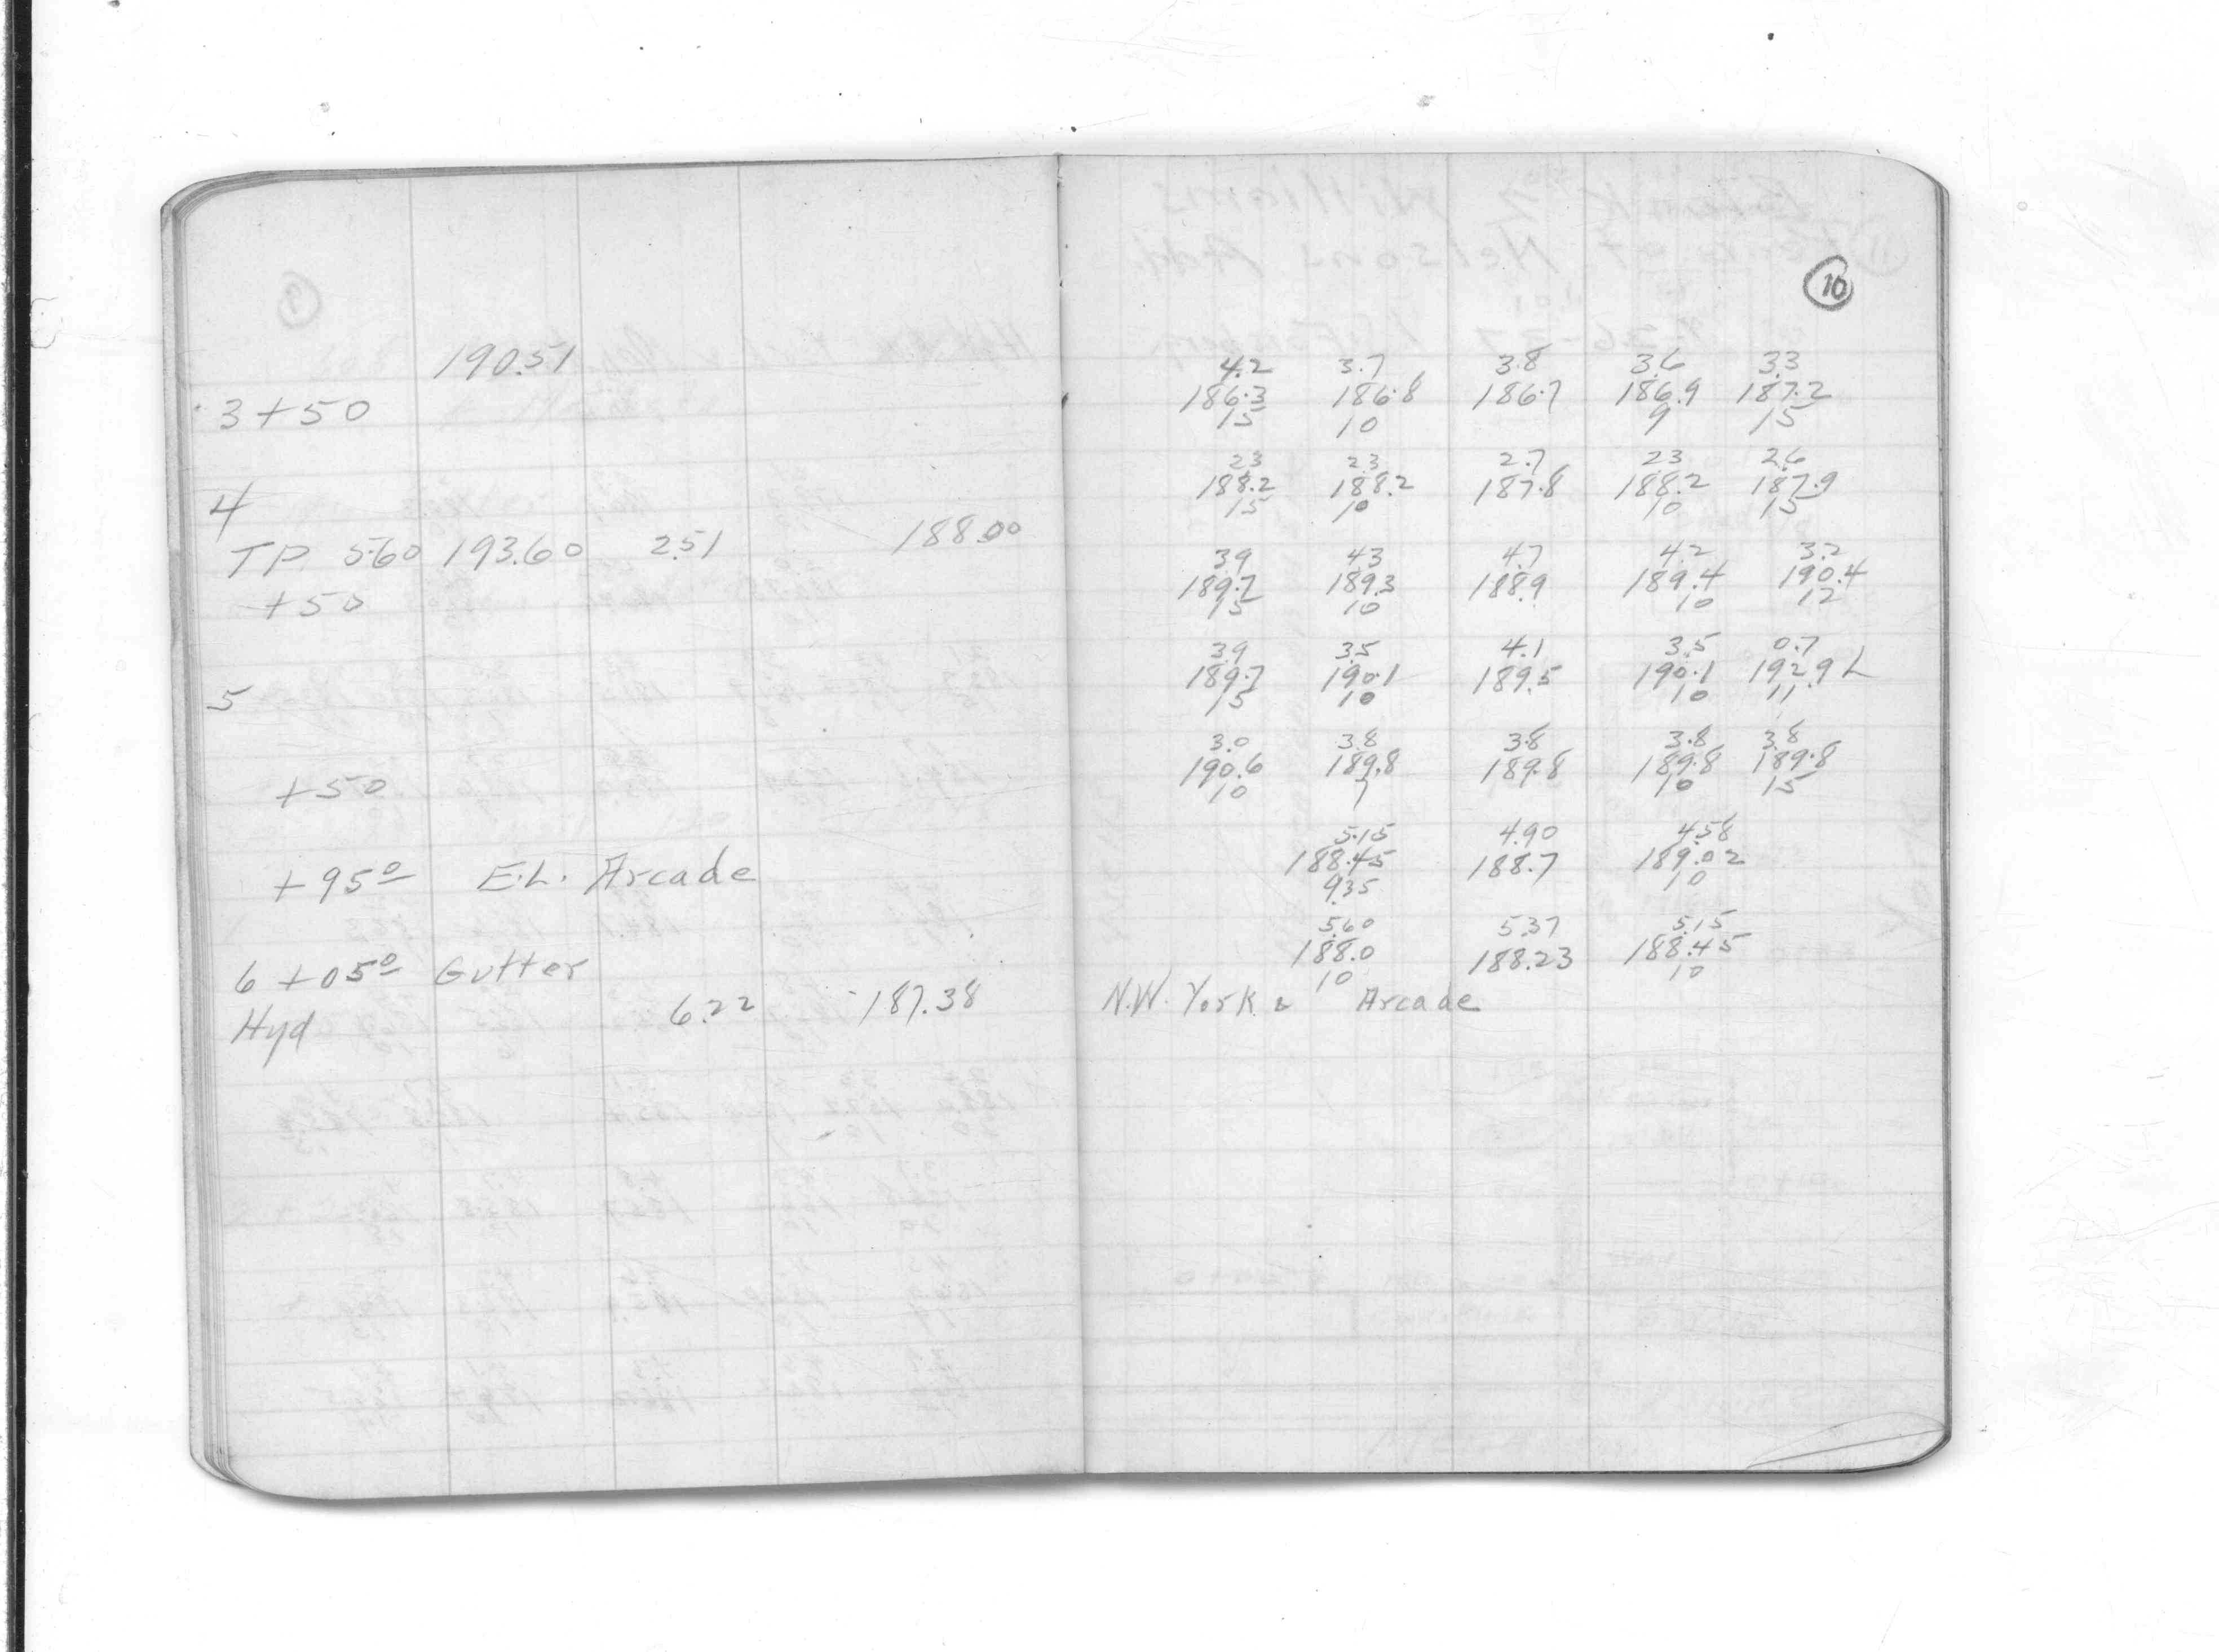 190.51
3+50
4
TP 5.60 193.60 2.51 188.00
+50
5
+50
+95⁰ E.L. Arcade
6+05⁰ Gutter
Hyd 6.22 187.38
10
4.2 3.7 3.8 3.6 3.3
186.3 186.8 186.7 186.9 187.2
15 10 9 15
2.3 2.3 2.7 2.3 2.6
188.2 188.2 187.8 188.2 187.9
15 10 10 15
3.9 4.3 4.7 4.2 3.2
189.7 189.3 188.9 189.4 190.4
15 10 10 12
3.9 3.5 4.1 3.5 0.7
189.7 190.1 189.5 190.1 192.9 L
15 10 10 11
3.0 3.8 3.8 3.8 3.8
190.6 189.8 189.8 189.8 189.8
10 7 10 15
5.15 4.90 4.58
188.45 188.7 189.02
9.35 10
5.60 5.37 5.15
188.0 188.23 188.45
10 10
N.W. York & Arcade